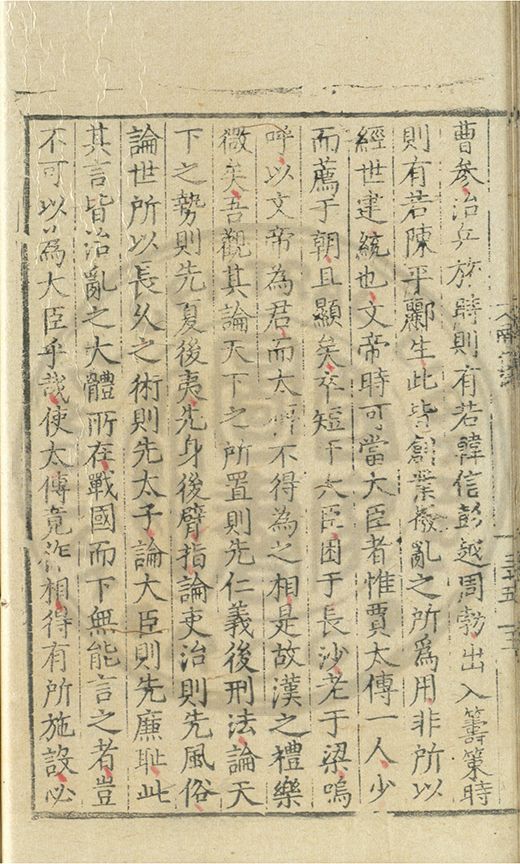 曹參治兵旅時則有若韓信彭越周勃出入籌策時
則有若陳平酈生此皆創業撥亂之所爲用非所以
經世建統也文帝時可當大臣者惟賈太傅一人少
而薦于朝且顯矣卒短于大臣困于長沙老于梁嗚
呼以文帝為君而太傅不得為之相是故漢之禮樂
微矣吾觀其論天下之所置則先仁義後刑法論天
下之勢則先夏後夷先身後臂指論吏治則先風俗
論世所以長久之術則先太子論大臣則先廉恥此
其言皆治亂之大體所在戰國而下無能言之者豈
不可以為大臣乎哉使太傅竟 相得有所施設必